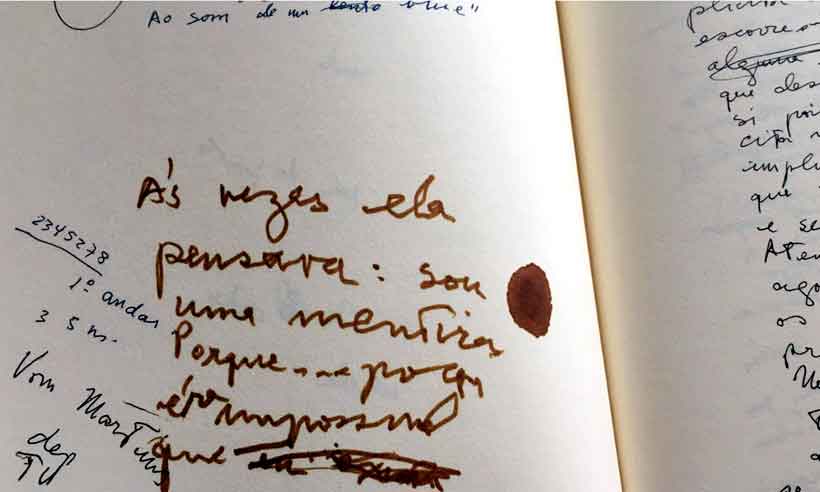 Ao som de um blue"
Às vezes ela
pensava: sou
uma mentira
Porque...
impossível
que
2345278
1º andar
3 5 m.
Martins
dep
escorre
alguma
que des
si poi
cita
impli
que
e se
Aten
ago
os
pr